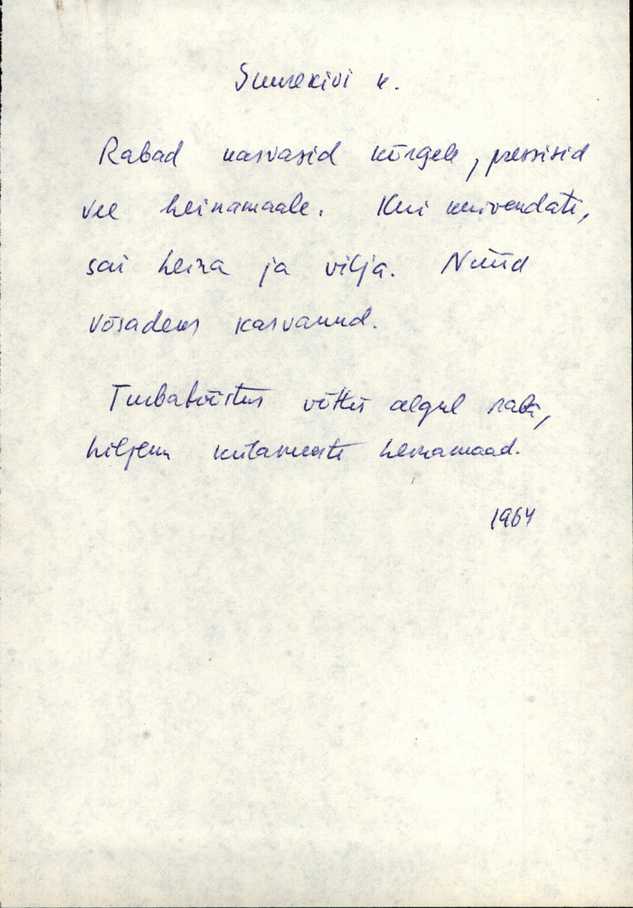 Suurekivi k.
Rabad kasvasid kõrgele, pressisid
vee heinamaale. Kui kuivendati,
sai heina ja vilja. Nüüd
võsadeus kasvanud.
Turbatööstus võttis algul raba,
hiljem külameeste heinamaad.
1964